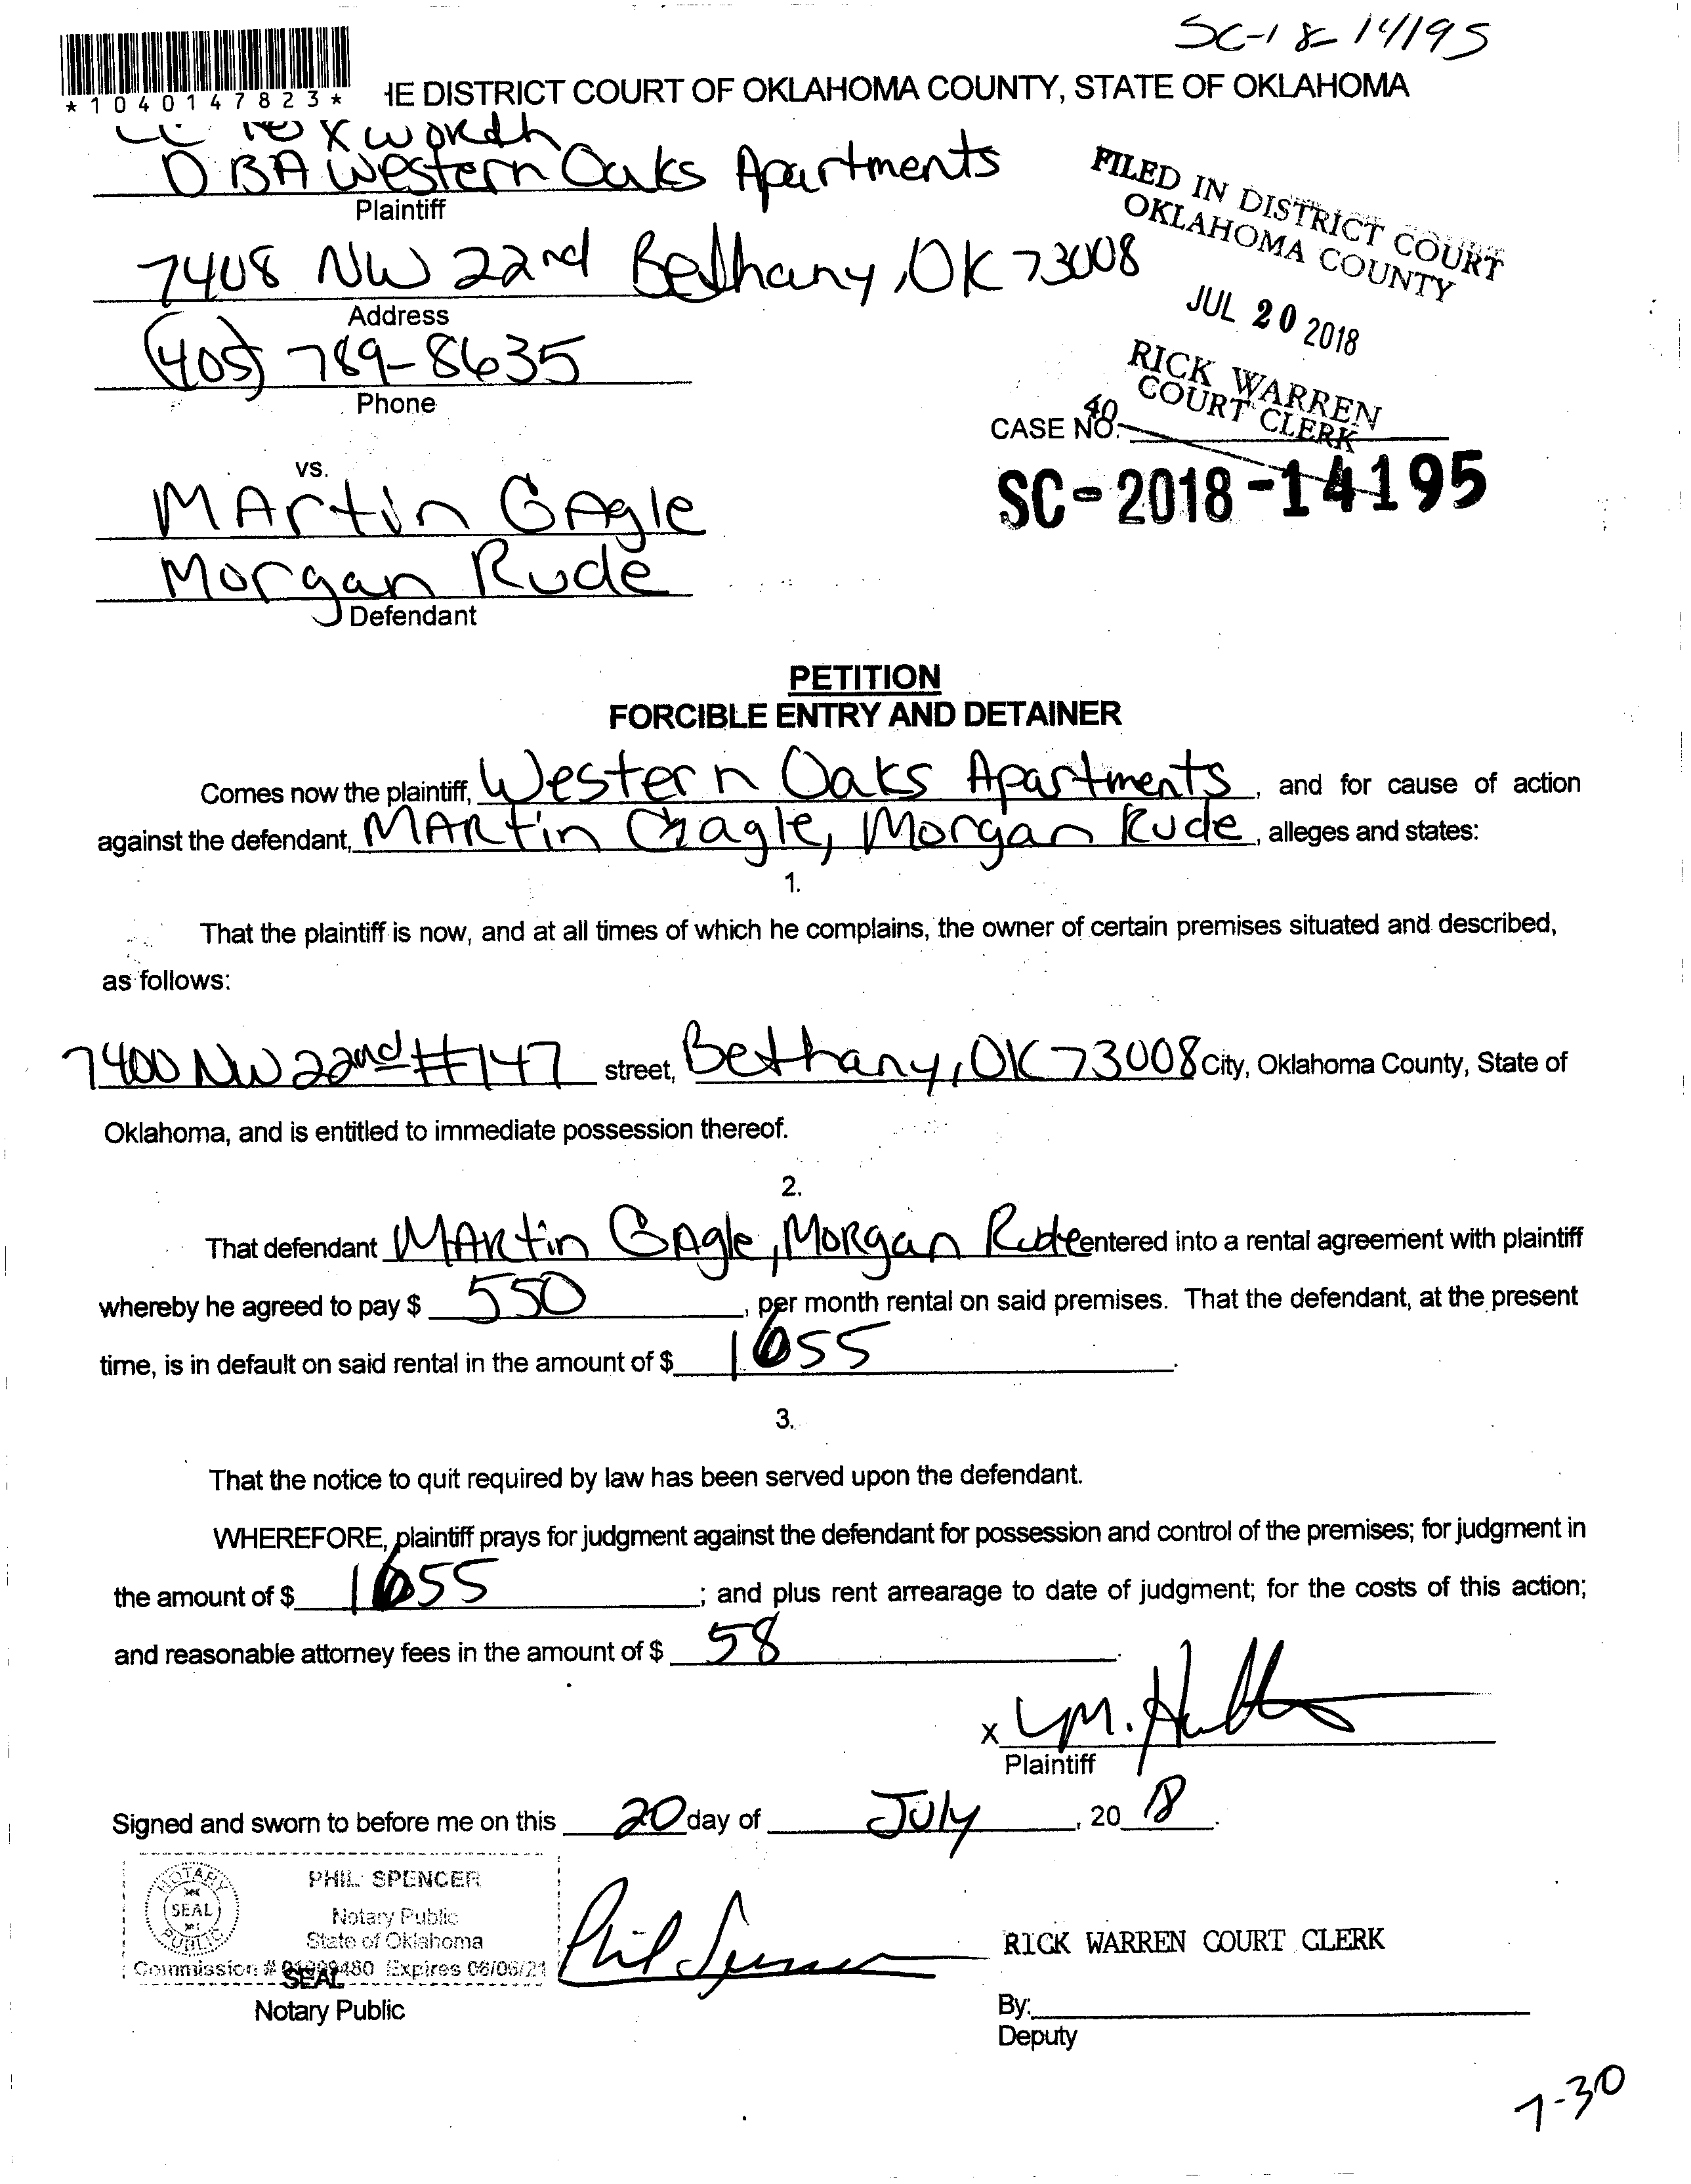 SC-18-14195
*1040147823*
HE DISTRICT COURT OF OKLAHOMA COUNTY, STATE OF OKLAHOMA
DBA Western Oaks Apartments
Plaintiff
FILED IN DISTRICT COURT
OKLAHOMA COUNTY
7408 NW 22nd Bethany, OK 73008
Address
JUL 20 2018
(405) 789-8635
Phone
RICK WARREN
COURT CLERK
40
CASE NO.
SC-2018-14195
vs.
MArtin GAgle
Morgan Rude
Defendant
PETITION
FORCIBLE ENTRY AND DETAINER
Comes now the plaintiff, Western Oaks Apartments, and for cause of action
against the defendant, MARtin Gagle, Morgan Rude, alleges and states:
1.
That the plaintiff is now, and at all times of which he complains, the owner of certain premises situated and described,
as follows:
7400 NW 22nd #147 street, Bethany, OK 73008 City, Oklahoma County, State of
Oklahoma, and is entitled to immediate possession thereof.
2.
That defendant MARtin GAgle, MoRgan Rude entered into a rental agreement with plaintiff
whereby he agreed to pay $ 550, per month rental on said premises. That the defendant, at the present
time, is in default on said rental in the amount of $ 1655.
3.
That the notice to quit required by law has been served upon the defendant.
WHEREFORE, plaintiff prays for judgment against the defendant for possession and control of the premises; for judgment in
the amount of $ 1655; and plus rent arrearage to date of judgment; for the costs of this action;
and reasonable attorney fees in the amount of $ 58.
X
Plaintiff
Signed and sworn to before me on this 20 day of July, 2018.
NOTARY PUBLIC
SEAL
PHIL SPENCER
Notary Public
State of Oklahoma
Commission # Expires 06/06/21
SEAL
Notary Public
Phil Spencer
RICK WARREN COURT CLERK
By:
Deputy
7-30